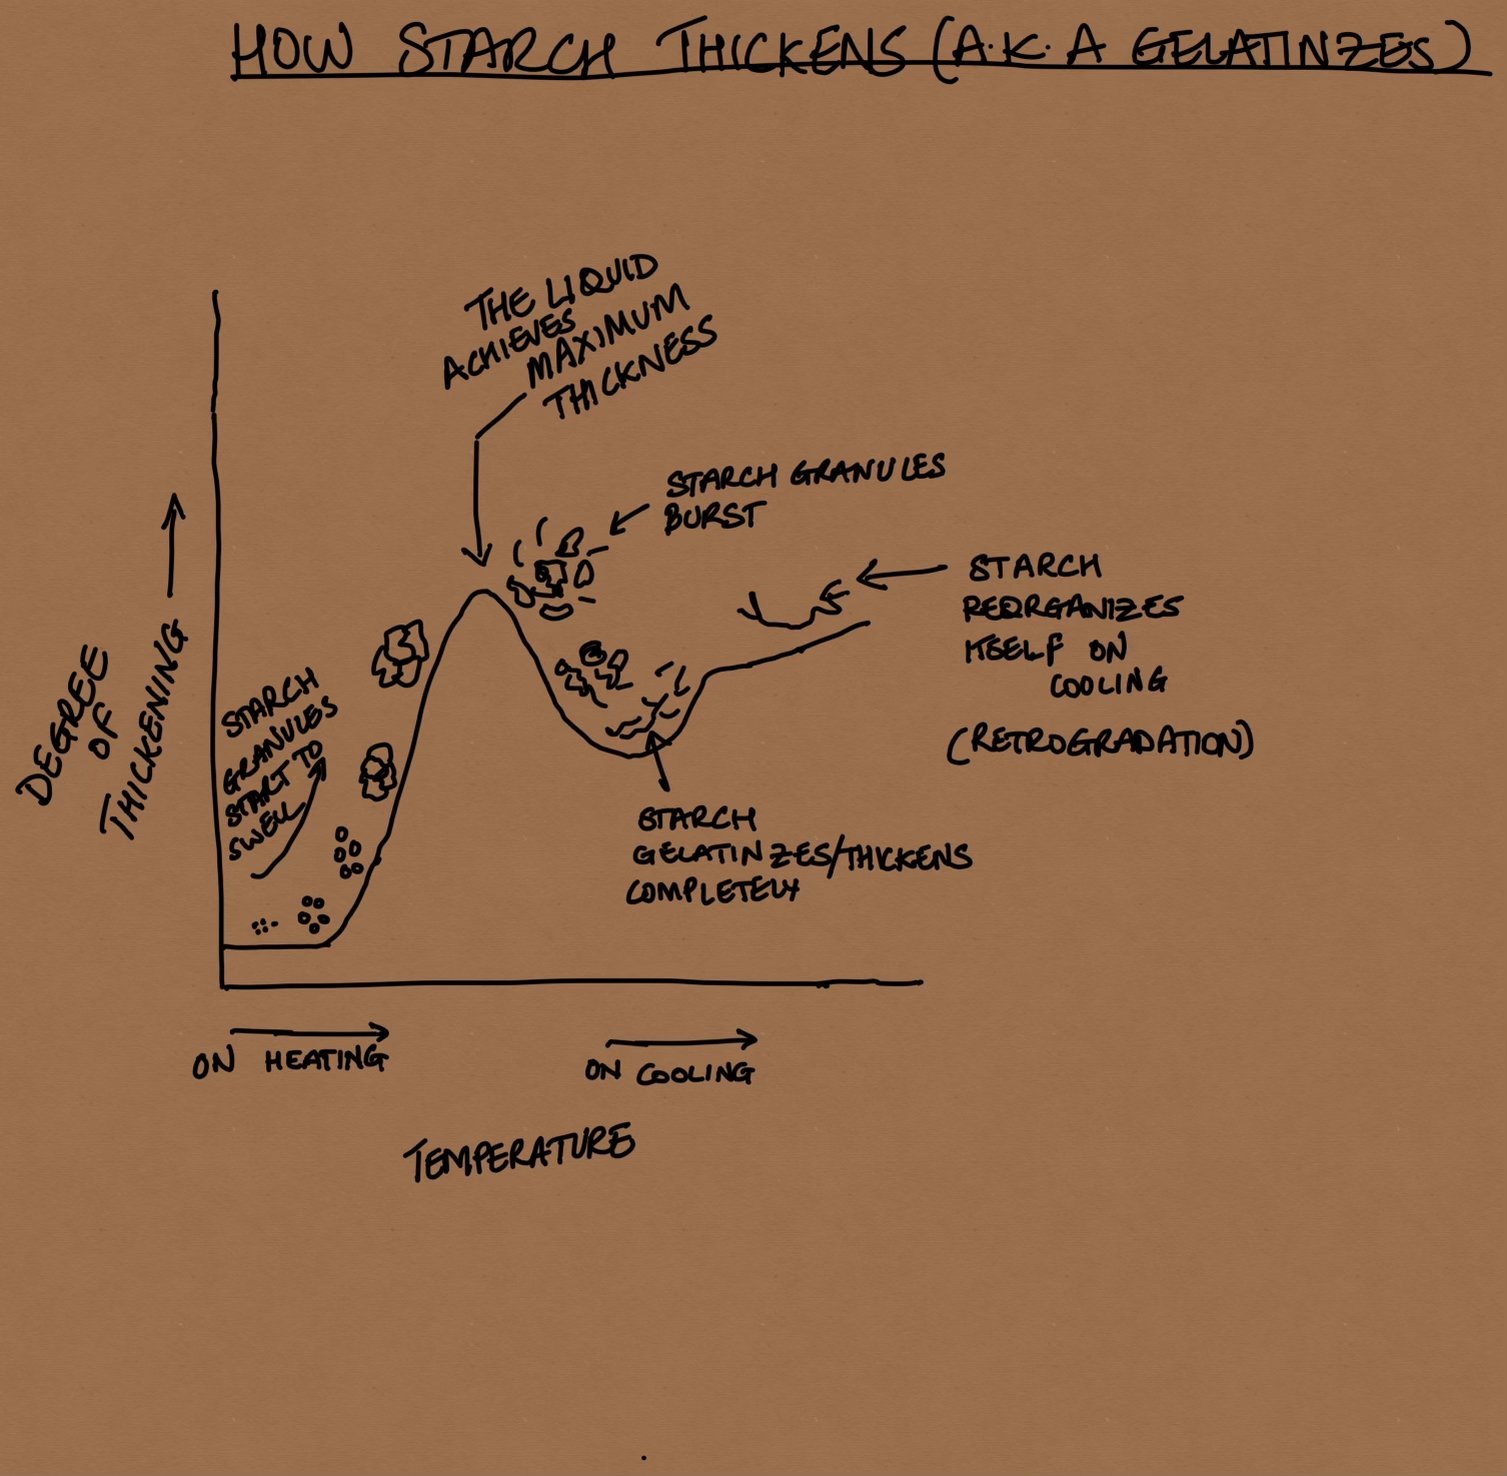 HOW STARCH THICKENS (A.K.A GELATINZES)
THE LIQUID
ACHIEVES
MAXIMUM
THICKNESS
STARCH GRANULES
BURST
STARCH
REORGANIZES
ITSELF ON
COOLING
(RETROGRADATION)
DEGREE
OF
THICKENING
STARCH
GRANULES
START TO
SWELL
STARCH
GELATINZES/THICKENS
COMPLETELY
ON HEATING
ON COOLING
TEMPERATURE